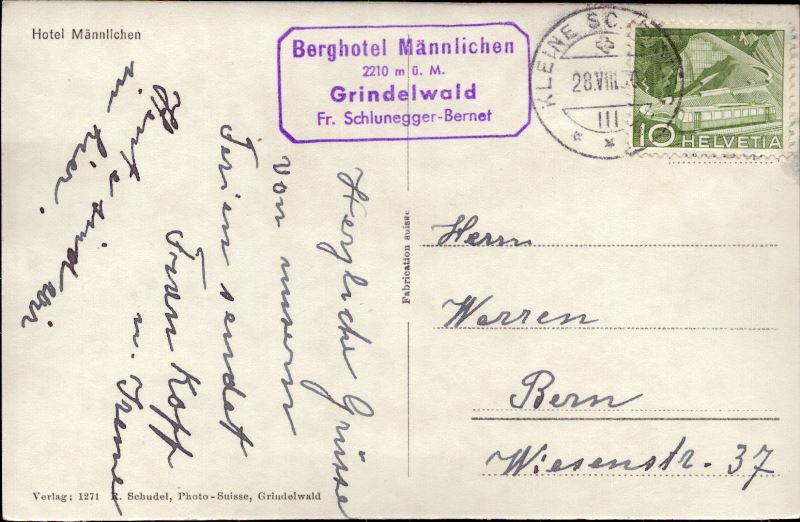 Hotel Männlichen
Berghotel Männlichen
2210 m ü. M.
Grindelwald
Fr. Schlunegger-Bernet
KLEINE SC
28.VIII.50
III
10 HELVETIA
Herzliche Grüsse
von unsern
Ferien sendet
Fran Kopf
u. Irene
Heute sind wir
hier.
Fabrication suisse
Herrn
Werren
Bern
Wiesenstr. 37
Verlag: 1271 R. Schudel, Photo-Suisse, Grindelwald